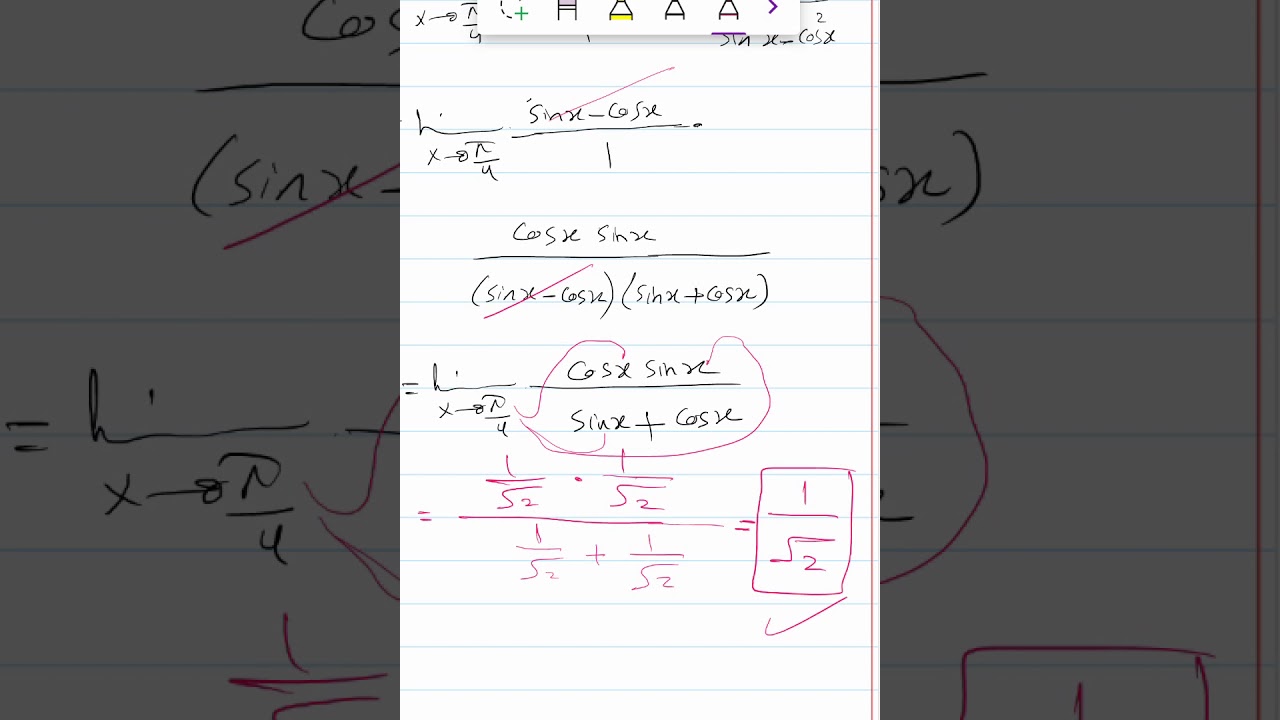 x→π/4 1 sin²x-cos²x
lim x→π/4 sinx-cosx / 1 ·
cosx sinx / (sinx-cosx)(sinx+cosx)
= lim x→π/4 cosx sinx / sinx+cosx
= 1/√2 · 1/√2 / 1/√2 + 1/√2 = 1/√2